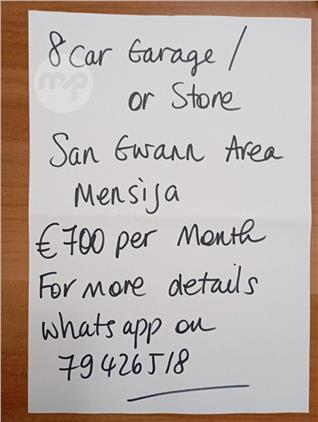 8 Car Garage /
or Store
San Gwann Area
Mensija
€700 per Month
For more details
whatsapp on
79426518
mp